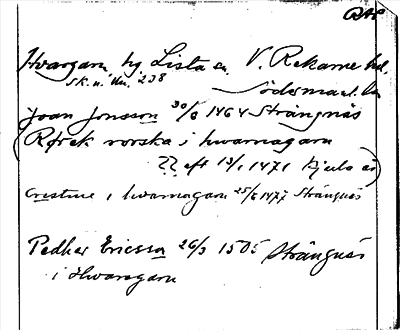 DAP
Hvargarn by Lista sn. V. Rekarne hd,
SK. n. Du. 238
Södermanl. län
Joan Jonsson 30/6 1464 Strängnäs
(Rørek norska i hwarnagarn
?? eft 13/1 1471 Kjula sn)
Crestine i hwarnagarn 25/6 1477 Strängnäs
Pedher Ericsson 26/3 1505 Strängnäs
i Hwaragarn